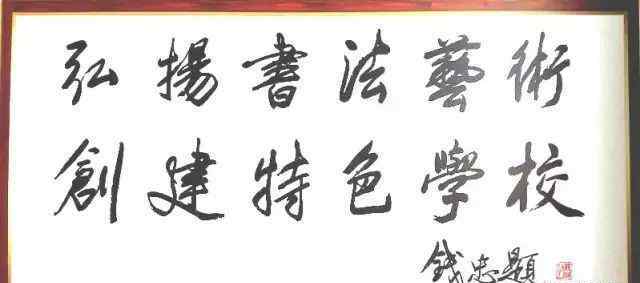 弘揚書法藝術
創建特色學校
錢忠題